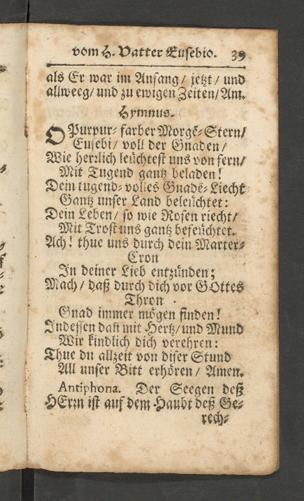 vom H. Vatter Eusebio. 39
als Er war im Anfang/ jetzt/ und
allweeg/ und zu ewigen Zeiten/ Am.
Hymnus.
O Purpur-farber Morgē-Stern/
Eusebi/ voll der Gnaden/
Wie herzlich leüchtest uns von fern/
Mit Tugend gantz beladen!
Dein tugend-volles Gnadē-Liecht
Gantz unser Land beleüchtet:
Dein Leben/ so wie Rosen riecht/
Mit Trost uns gantz befeüchtet.
Ach! thue uns durch dein Marter-
Cron
In deiner Lieb entzünden;
Mach/ daß durch dich vor GOttes
Thron
Gnad immer mögen finden!
Indessen daß mit Hertz/ und Mund
Wir kindlich dich verehren:
Thue du allzeit von diser Stund
All unser Bitt erhören/ Amen.
Antiphona. Der Seegen deß
HErrn ist auf dem Haubt deß Ge-
rech-